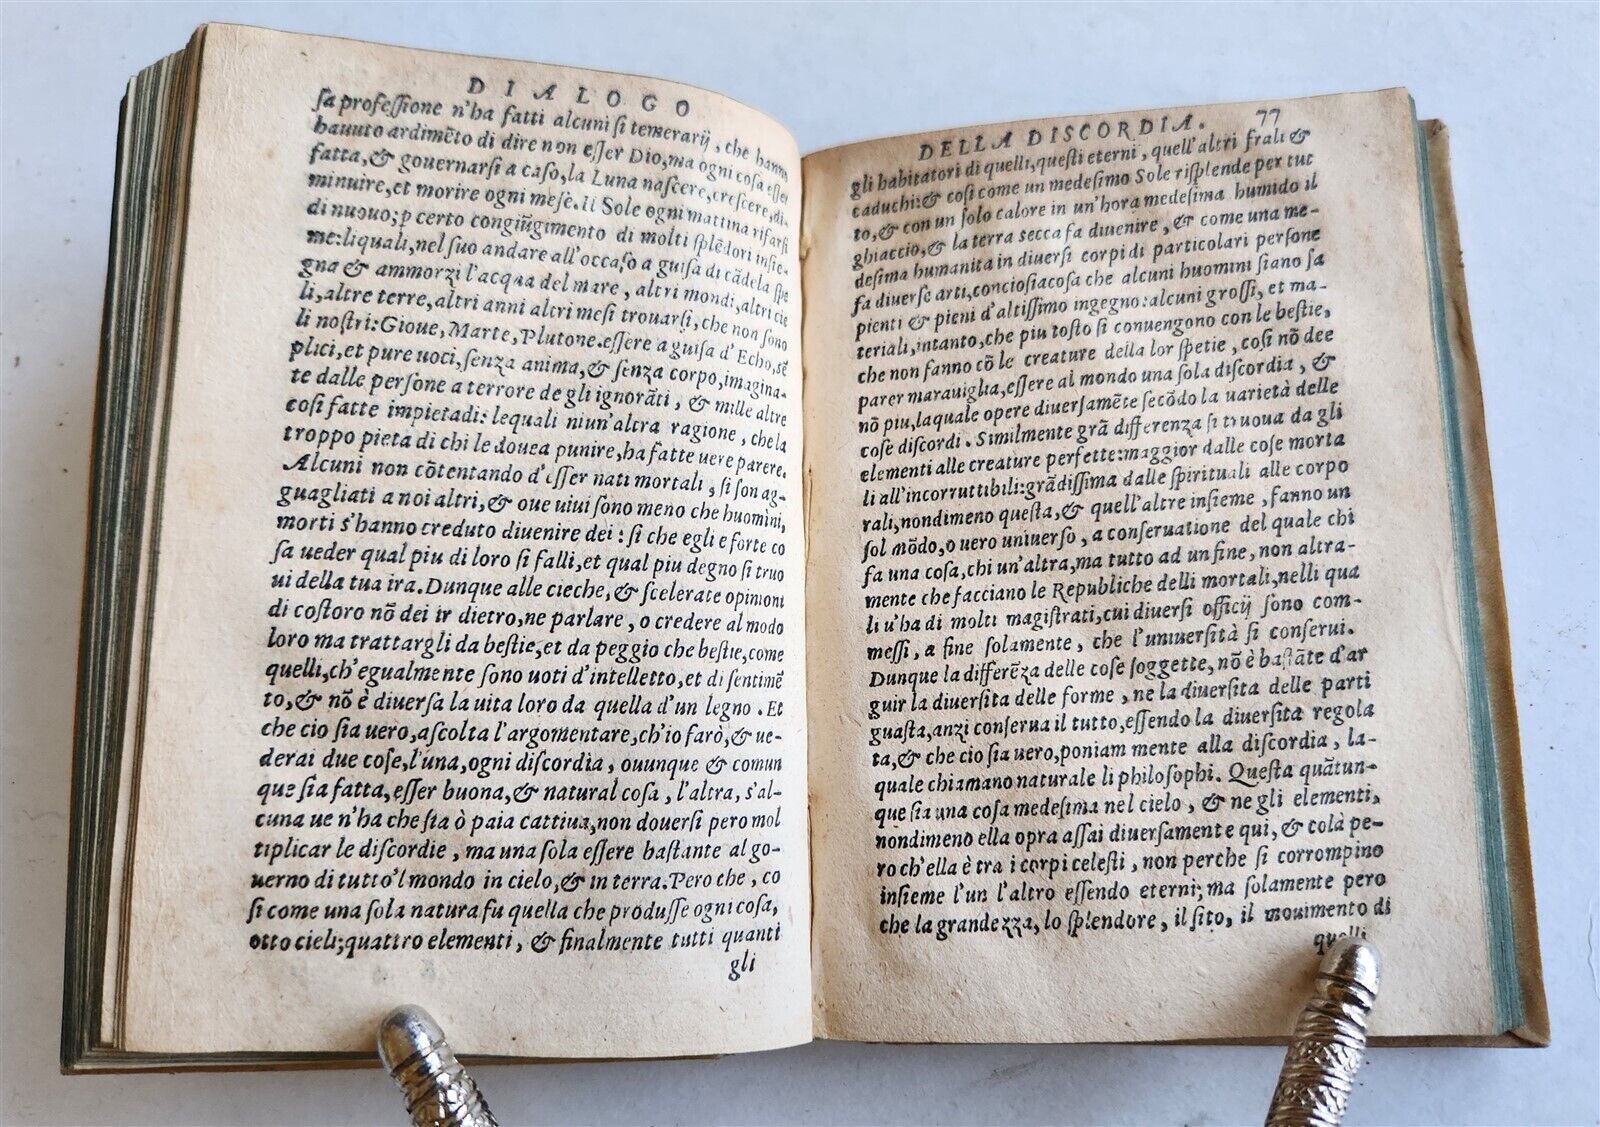 DIALOGO
ſa profeſſione n'ha fatti alcuni ſi temerarij, che hanno
hauuto ardimẽto di dire non eſſer Dio, ma ogni coſa eſſer
fatta, & gouernarſi a caſo, la Luna naſcere, creſcere, di-
minuire, et morire ogni meſe. Il Sole ogni mattina rifarſi
di nuouo; ꝑ certo congiũgimento di molti ſplẽdori inſie-
me: liquali, nel ſuo andare all'occaſo a guiſa di cãdela ſpe
gna & ammorzi l'acqua del mare, altri mondi, altri cie
li, altre terre, altri anni altri meſi trouarſi, che non ſono
li noſtri: Gioue, Marte, Plutone. eſſere a guiſa d'Echo, sẽ
plici, et pure uoci, ſenza anima, & ſenza corpo, imagina-
te dalle perſone a terrore de gli ignorãti, & mille altre
coſi fatte impietadi: lequali niun'altra ragione, che la
troppo pieta di chi le douea punire, ha fatte uere parere.
Alcuni non cõtentando d'eſſer nati mortali, ſi ſon ag-
guagliati a noi altri, & oue uiui ſono meno che huomini,
morti s'hanno creduto diuenire dei: ſi che egli e forte co
ſa ueder qual piu di loro ſi falli, et qual piu degno ſi truo
ui della tua ira. Dunque alle cieche, & ſcelerate opinioni
di coſtoro nõ dei ir dietro, ne parlare, o credere al modo
loro ma trattargli da beſtie, et da peggio che beſtie, come
quelli, ch'egualmente ſono uoti d'intelletto, et di ſentimẽ
to, & nõ è diuerſa la uita loro da quella d'un legno. Et
che cio ſia uero, aſcolta l'argomentare, ch'io farò, & ue-
derai due coſe, l'una, ogni diſcordia, ouunque & comun
que ſia fatta, eſſer buona, & natural coſa, l'altra, s'al-
cuna ue n'ha che ſia ò paia cattiua, non douerſi pero mol
tiplicar le diſcordie, ma una ſola eſſere baſtante al go-
uerno di tutto'l mondo in cielo, & in terra. Pero che, co
ſi come una ſola natura fu quella che produſſe ogni coſa,
otto cieli; quattro elementi, & finalmente tutti quanti
gli
DELLA DISCORDIA. 77
gli habitatori di quelli, queſti eterni, quell'altri frali &
caduchi: & coſi come un medeſimo Sole riſplende per tut
to, & con un ſolo calore in un'hora medeſima humido il
ghiaccio, & la terra secca fa diuenire, & come una me-
deſima humanita in diuerſi corpi di particolari perſone
fa diuerſe arti, concioſiacoſa che alcuni huomini ſiano ſa
pienti & pieni d'altiſſimo ingegno: alcuni groſſi, et ma-
teriali, intanto, che piu toſto ſi conuengono con le beſtie,
che non fanno cõ le creature della lor ſpetie, coſi nõ dee
parer marauiglia, eſſere al mondo una ſola diſcordia, &
nõ piu, laquale opere diuerſamẽte secõdo la uarietà delle
coſe diſcordi. Similmente grã differenza ſi truoua da gli
elementi alle creature perfette: maggior dalle coſe morta
li all'incorruttibili: grãdiſſima dalle ſpirituali alle corpo
rali, nondimeno queſta, & quell'altre inſieme, fanno un
ſol mõdo, o uero uniuerſo, a conſeruatione del quale chi
fa una coſa, chi un'altra, ma tutto ad un fine, non altra-
mente che facciano le Republiche delli mortali, nelli qua
li u'ha di molti magiſtrati, cui diuerſi officij ſono com-
meſſi, a fine ſolamente, che l'uniuerſità ſi conſerui.
Dunque la differẽza delle coſe ſoggette, nõ è baſtãte d'ar
guir la diuerſita delle forme, ne la diuerſita delle parti
guaſta, anzi conſerua il tutto, eſſendo la diuerſita regola
ta, & che cio ſia uero, poniam mente alla diſcordia, la-
quale chiamano naturale li philoſophi. Queſta quãtun-
que ſia una coſa medeſima nel cielo, & ne gli elementi,
nondimeno ella opra aſſai diuerſamente qui, & colà pe-
ro ch'ella è tra i corpi celeſti, non perche ſi corrompino
inſieme l'un l'altro eſſendo eterni; ma ſolamente pero
che la grandezza, lo ſplendore, il ſito, il mouimento di
quelli